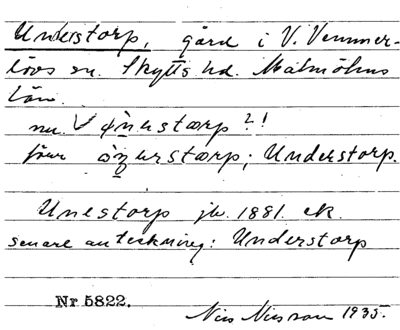 Understorp, gård i V. Vemmer-
lövs sn. Skytts hd. Malmöhus
län.
nu V ønustorp?!
förr Understorp.
Unestorp jb. 1881. ek.
senare anteckning: Understorp
Nr 5822.
Nils Nilsson 1935.